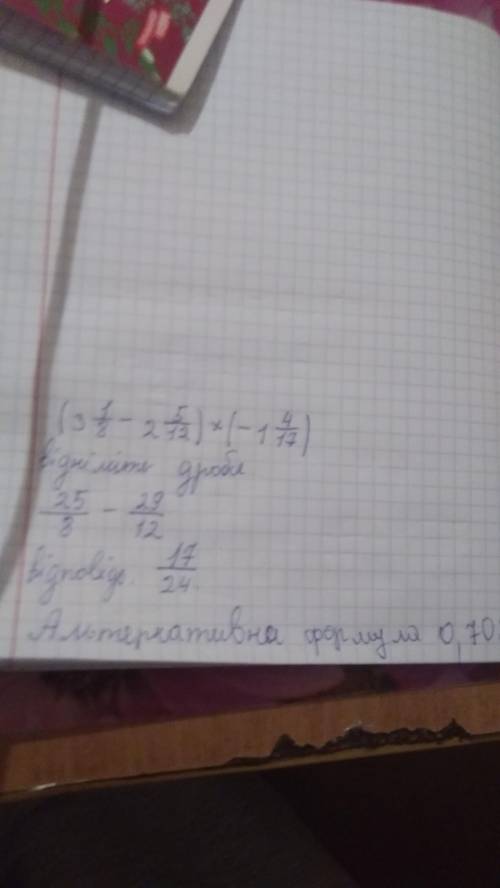 (3 1/8 - 2 5/12) × (-1 4/17)
відніліть дроби
25/8 - 29/12
відповідь. 17/24.
Альтернативна формула 0,70